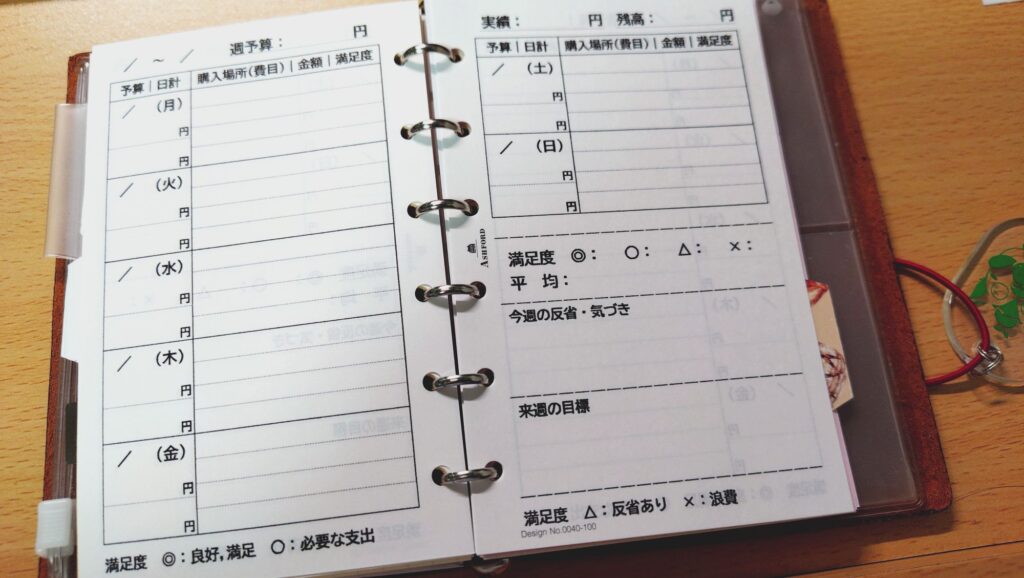 ／ ～ ／ 週予算： 円
予算｜日計 購入場所(費目)｜金額｜満足度
／ （月）
円
円
／ （火）
円
円
／ （水）
円
円
／ （木）
円
円
／ （金）
円
円
満足度 ◎：良好,満足 ○：必要な支出
実績： 円 残高： 円
予算｜日計 購入場所(費目)｜金額｜満足度
／ （土）
円
円
／ （日）
円
円
ASHFORD
満足度 ◎： ○： △： ×：
平 均：
今週の反省・気づき
来週の目標
満足度 △：反省あり ×：浪費
Design No.0040-100